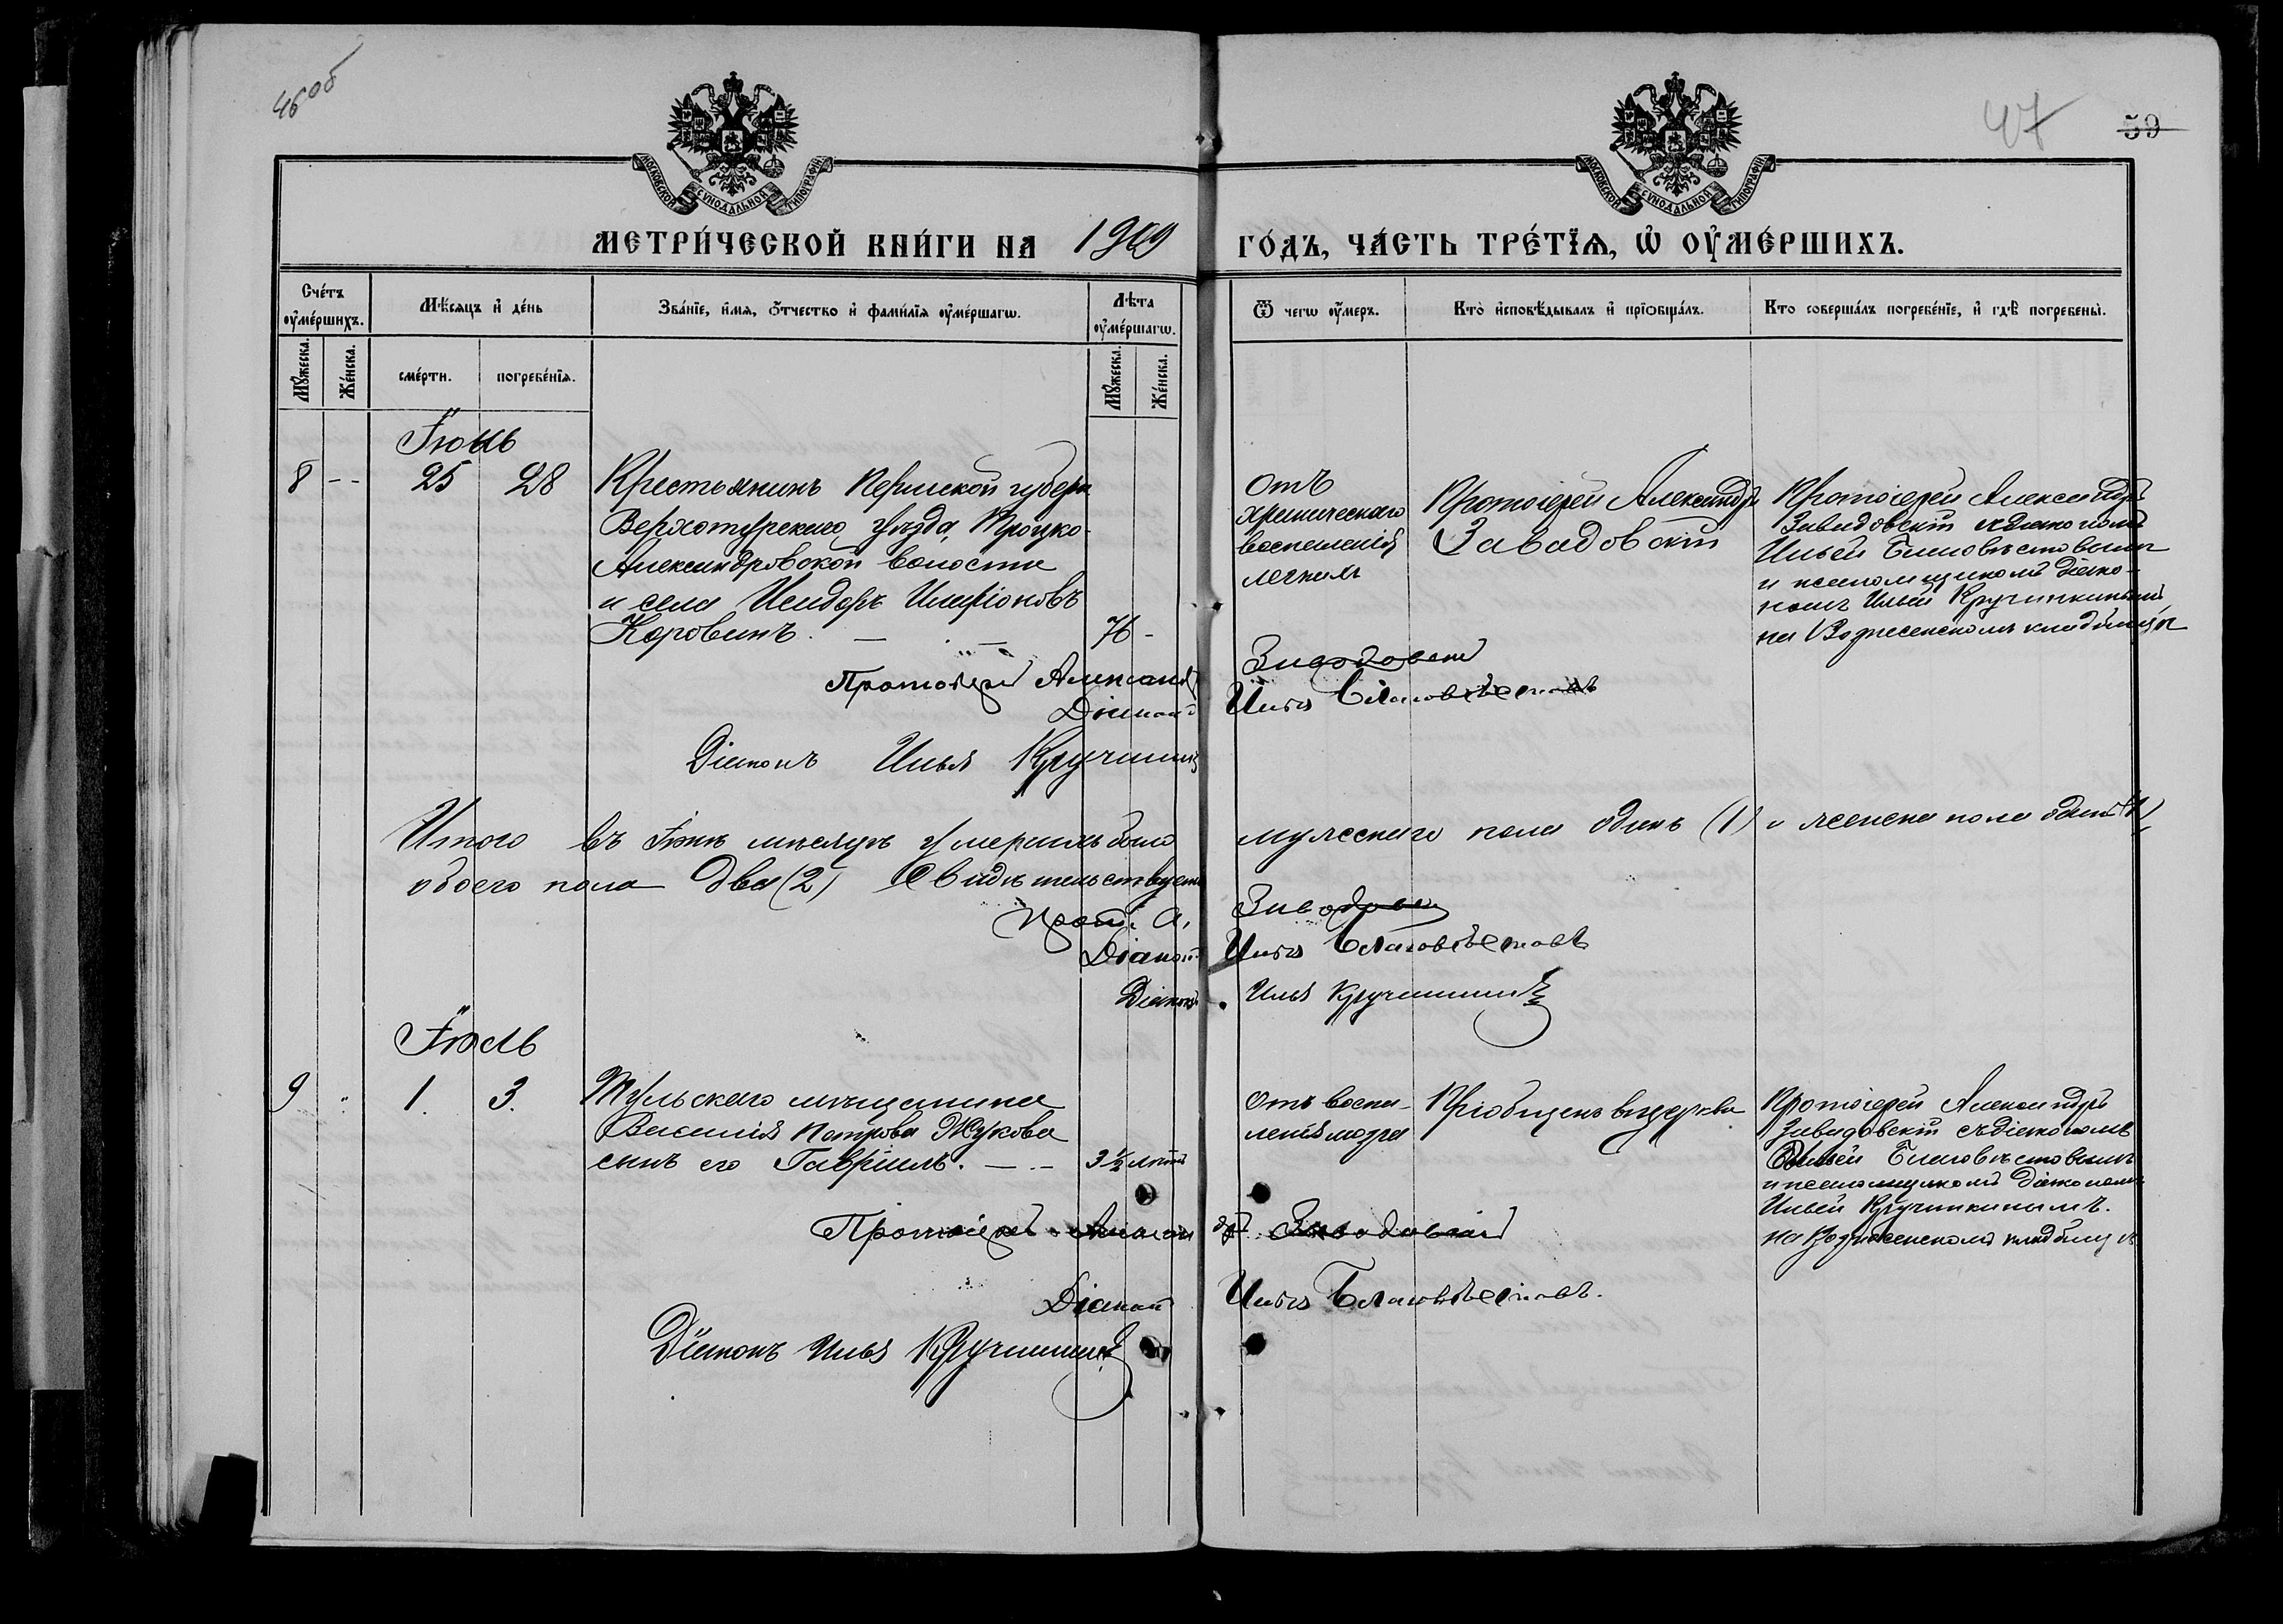 46об
47
59
МОСКОВСКОЙ СѴНОДАЛЬНОЙ ТИПОГРАФІИ
МОСКОВСКОЙ СѴНОДАЛЬНОЙ ТИПОГРАФІИ
МЕТРИ́ЧЕСКОЙ КНИ́ГИ НА 1909
ГО́ДЪ, ЧА́СТЬ ТРЕ́ТЇѦ, Ѡ҆ ОУ҆МЕ́РШИХЪ.
Сче́тъ оу҆ме́ршихъ.
Мѣ́сѧцъ и҆ де́нь
Зва́нїе, и҆́мѧ, ѻ҆́тчество и҆ фами́лїѧ оу҆ме́ршагѡ.
Лѣ́та оу҆ме́ршагѡ.
Ѿ чегѡ̀ оу҆́меръ.
Кто̀ и҆сповѣ́дывалъ и҆ прїѻбща́лъ.
Кто соверша́лъ погребе́нїе, и҆ гдѣ̀ погребены̀.
Мꙋ́жеска.
Же́нска.
сме́рти.
погребе́нїѧ.
Мꙋ́жеска.
Же́нска.
Іюнь
8 -- 25 28
Крестьянинъ Пермской губерн
Верхотурскаго уѣзда, Троицко-
Александровской волости
и села Исидоръ Иларіоновъ
Коровинъ. — . —
76 -
отъ
хроническаго
воспаленія
легкихъ
Протоіерей Александръ
Завадовскій
Протоіерей Александръ
Завадовскій съ діакономъ
Ильей Благовѣстовымъ
и псаломщикомъ діако-
номъ Ильей Кручинкинымъ
на Вознесенскомъ кладбищѣ
Протоіерей Александръ Завадовскій
Діаконъ Илья Благовѣстовъ
Діаконъ Илья Кручинкинъ
Итого въ Іюнѣ мѣсяцѣ умершихъ было мужескаго пола одинъ (1) и женска пола одна (1)
обоего пола два (2) Свидѣтельствуемъ
Прот. А. Завадовскій
Діаконъ Илья Благовѣстовъ
Діаконъ Илья Кручинкинъ
Іюль
9 " 1. 3.
Тульскаго мѣщанина
Василія Петрова Жукова
сынъ его Гавріилъ. — --
3½ лѣтъ
Отъ воспа-
ленія мозга
Пріобщенъ въ церкви
Протоіерей Александръ
Завадовскій съ діакономъ
Ильей Благовѣстовымъ
и псаломщикомъ діакономъ
Ильей Кручинкинымъ.
на Вознесенскомъ кладбищѣ
Протоіерей Александръ Завадовскій
Діаконъ Илья Благовѣстовъ.
Діаконъ Илья Кручинкинъ